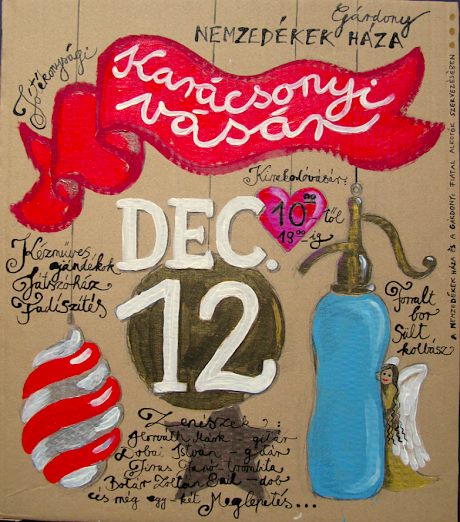 Gárdony
NEMZEDÉKEK HÁZA
Jótékonysági
Karácsonyi
vásár
Kirakodóvásár:
10⁰⁰ től
18⁰⁰-ig
DEC.
12
Kézműves
ajándékok
Játszóház
Fadíszítés
Forralt
bor
Sült
kolbász
Zenészek:
Horváth Márk - gitár
Lobai István - gitár
Tiras Janó trombita
Botár Zoltán - dob
és még egy-két Meglepetés...
A NEMZEDÉKEK HÁZA ÉS A GÁRDONYI FIATAL ALKOTÓK SZERVEZÉSÉBEN